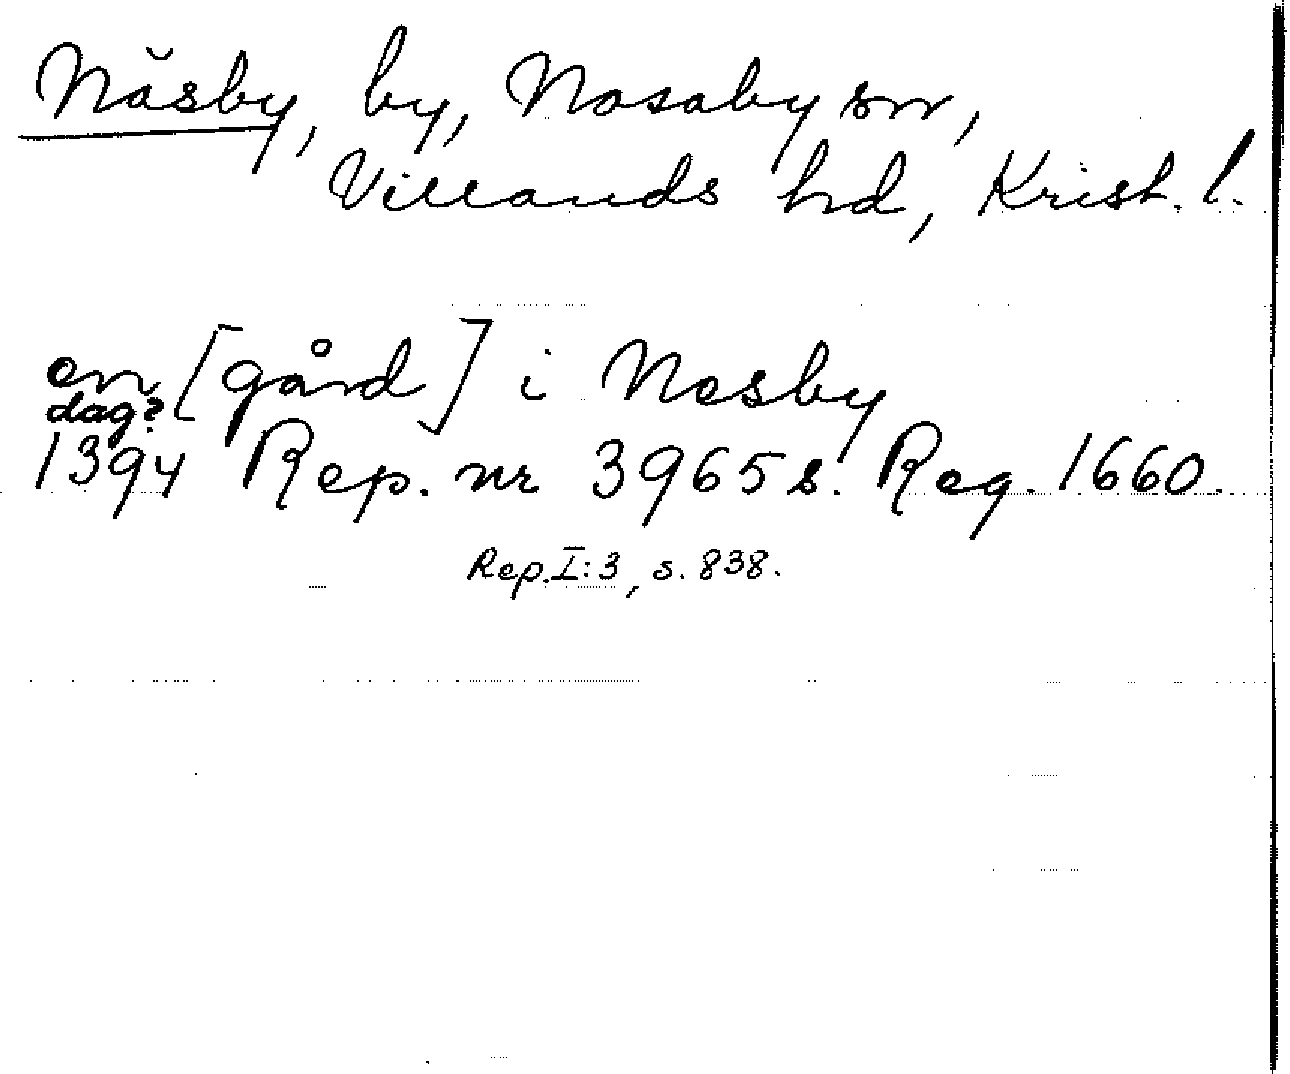 Näsby, by, Nosaby sn,
Villands hd, Krist. l.
en [gård] i Nesby
dag?
1394 Rep. nr 3965 s. Reg. 1660.
Rep. I:3, s. 838.